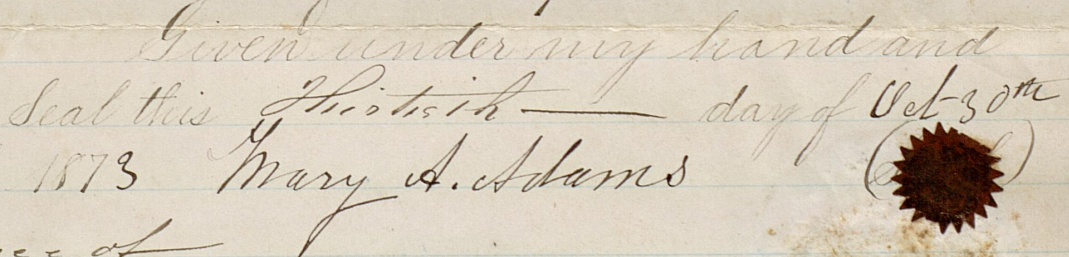 Given under my hand and
Seal this Thirtieth day of Oct 30th
1873 Mary A. Adams
of